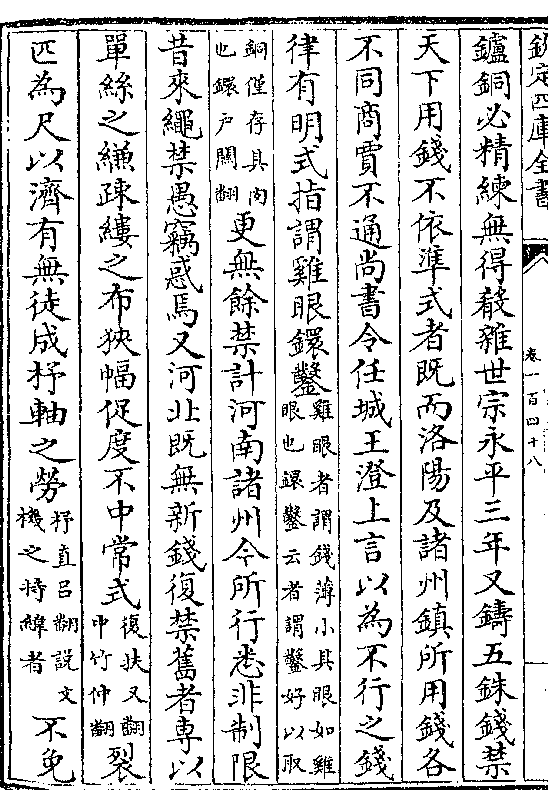 欽定四庫全書
卷一百四十八
鑪銅必精練無得殽雜世宗永平三年又鑄五銖錢禁
天下用錢不依準式者既而洛陽及諸州鎮所用錢各
不同商賈不通尚書令任城王澄上言以為不行之錢
律有明式指謂雞眼鐶鑿雞眼者謂錢薄小其眼如雞眼也鐶鑿云者謂鑿好以取
銅僅存其肉也鐶戸關翻更無餘禁計河南諸州今所行悉非制限
昔來繩禁愚竊惑焉又河北既無新錢復禁舊者專以
單絲之縑疎縷之布狹幅促度不中常式復扶又翻中竹仲翻裂
匹為尺以濟有無徒成杼軸之勞杼直呂翻說文機之持緯者不免